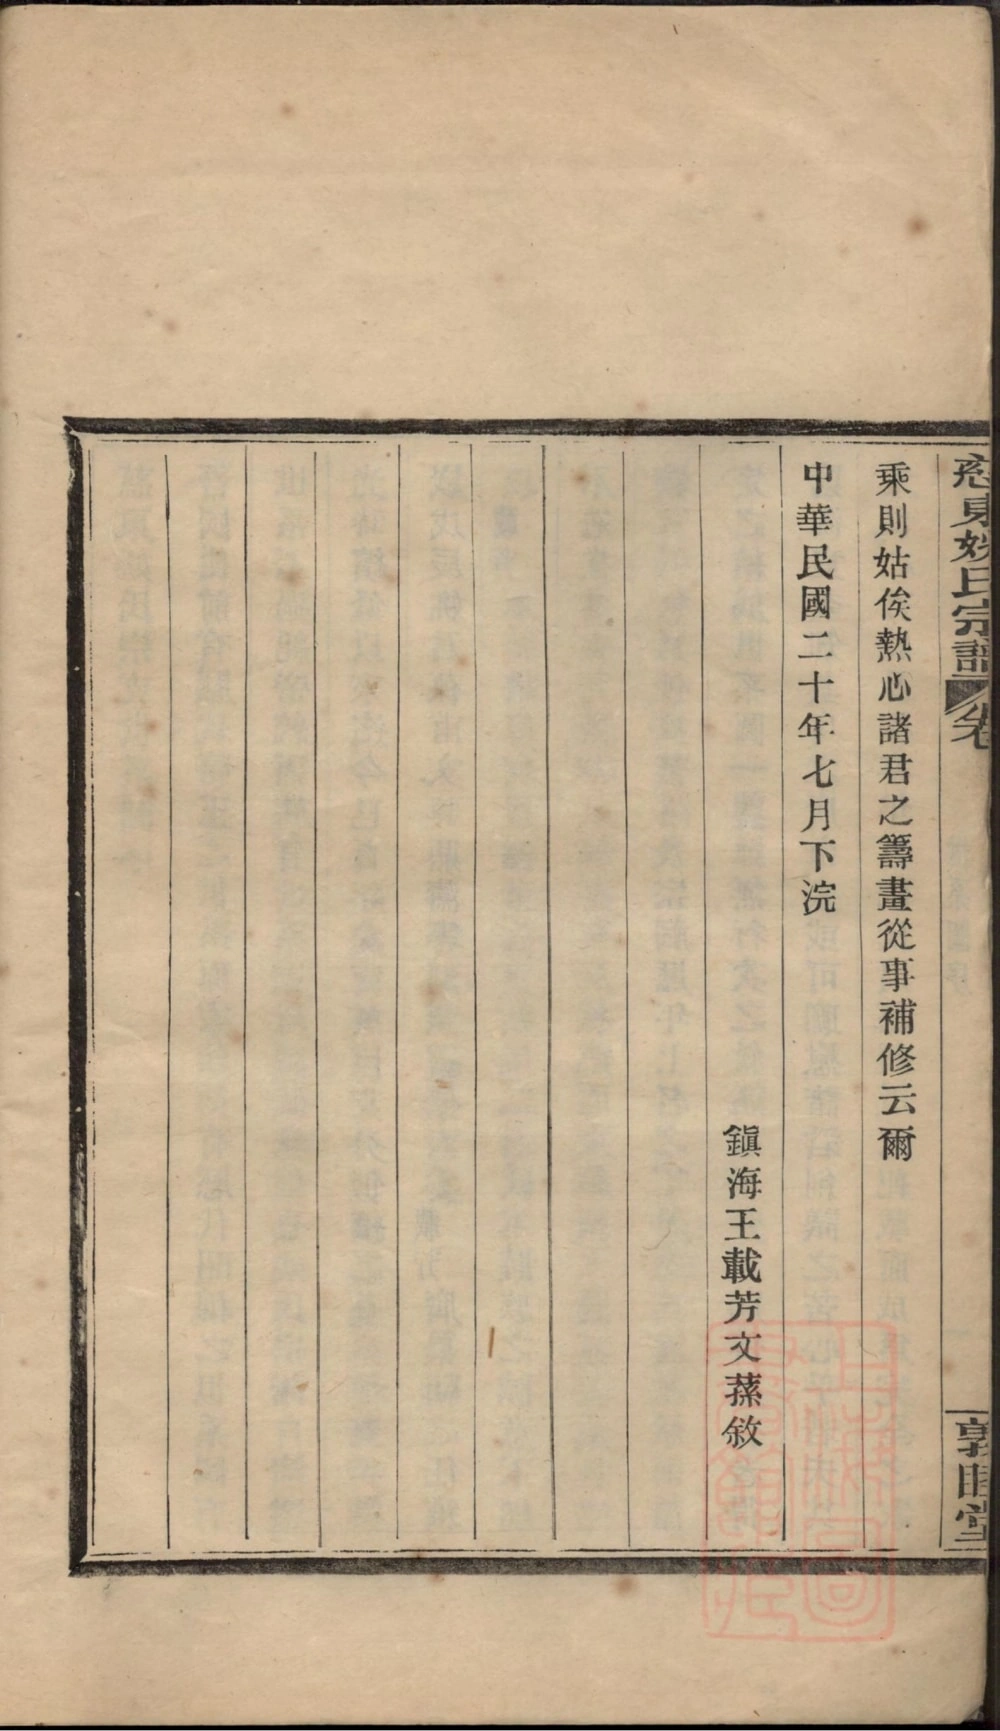 慈東姚氏宗譜 卷
敦睦堂
乘則姑俟熱心諸君之籌畫從事補修云爾
中華民國二十年七月下浣
鎮海王載芳文蓀敘